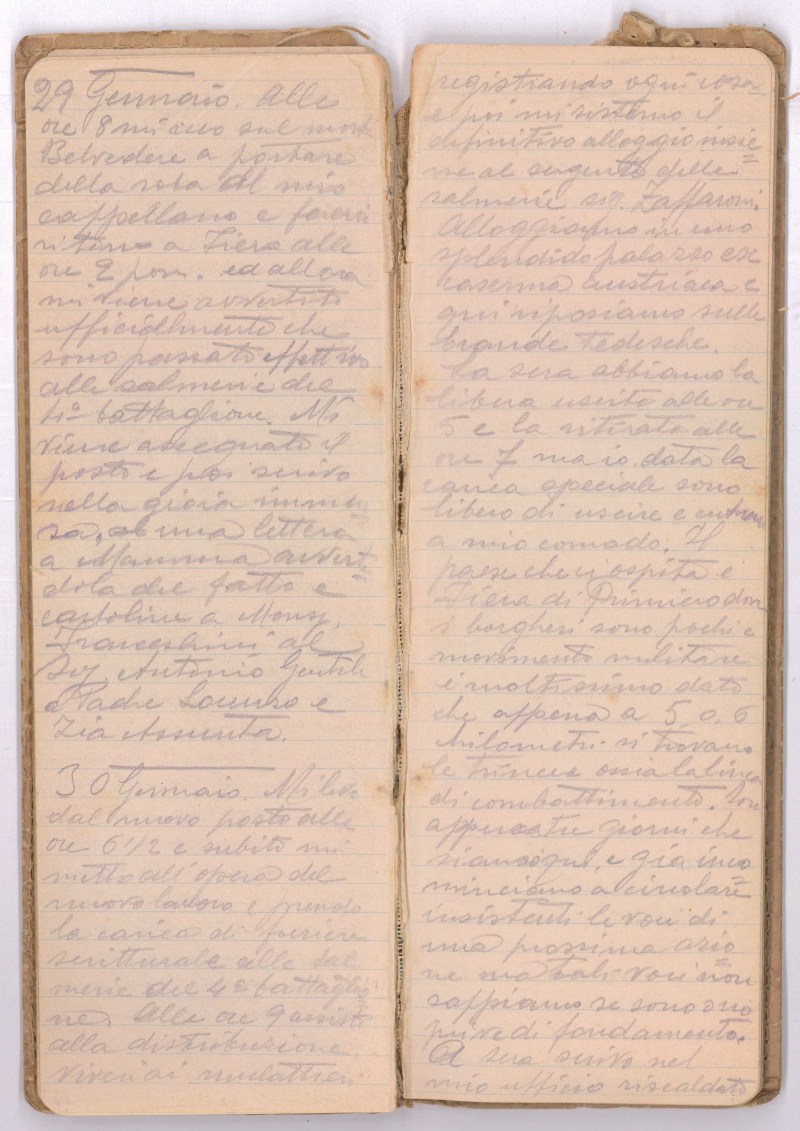 29 Gennaio. Alle
ore 8 mi reco sul monte
Belvedere a portare
della roba al mio
cappellano e faccio
ritorno a Fiera alle
ore 2 pom. ed allora
mi viene avvertito
ufficialmente che
sono passato effettivo
alle salmerie del
4º battaglione. Mi
viene assegnato il
posto e poi scrivo
nella gioia immen=
sa, una lettera
a Mamma avverten=
dola del fatto e
cartoline a Mons.
Franceschini al
Sig. Antonio Gentili
a Padre Lorenzo e
Zia Assunta.
30 Gennaio. Mi levo
dal nuovo posto alle
ore 6 1/2 e subito mi
metto all'opera del
nuovo lavoro e prendo
la carica di furiere
scritturale alle sal
merie del 4º battaglio=
ne. Alle ore 9 assisto
alla distribuzione
viveri ai mulattieri
registrando ogni cosa
e poi mi sistemo il
definitivo alloggio insie=
me al sergente delle
salmerie sig. Zaffaroni.
Alloggiamo in uno
splendido palazzo ex
caserma austriaca e
qui riposiamo sulle
brande tedesche.
La sera abbiamo la
libera uscita alle ore
5 e la ritirata alle
ore 7 ma io data la
carica speciale sono
libero di uscire e entrare
a mio comodo. Il
paese che ci ospita è
Fiera di Primiero dove
i borghesi sono pochi e
movimento militare
è moltissimo dato
che appena a 5 o 6
kilometri si trovano
le trincee ossia la linea
di combattimento. Son
appena tre giorni che
siamo qui, e già inco
minciano a circolare
insistenti le voci di
una prossima azio
ne ma tali voci non
sappiamo se sono o no
prive di fondamento.
A sera scrivo nel
mio ufficio riscaldato